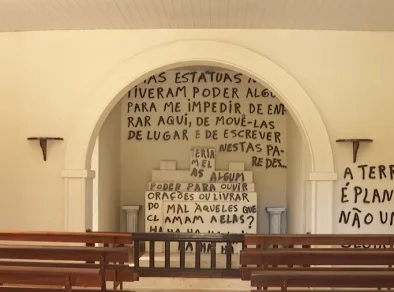 AS ESTATUAS
TIVERAM PODER
PARA ME IMPEDIR DE EN-
RAR AQUI, DE MOVÊ-LAS
DE LUGAR E DE ESCREVER
NESTAS PA-
REDES...
TERIA
M EL
AS ALGUM
PODER PARA OUVIR
ORAÇÕES OU LIVRAR
DO MAL ÀQUELES QUE
CLAMAM A ELAS?
HA HA HA
A TERR
É PLAN
NÃO